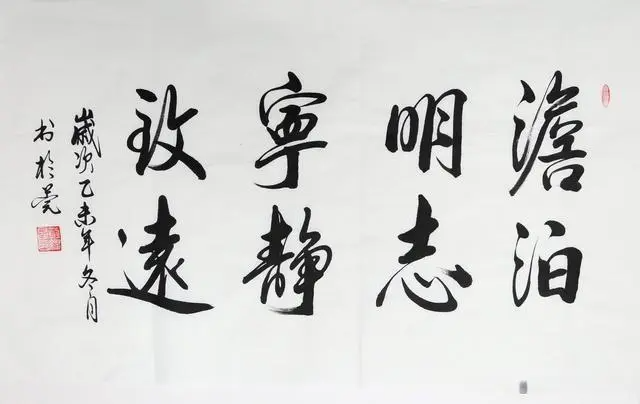 澹泊
明志
寧静
致遠
歲次乙未年冬月
书於莞